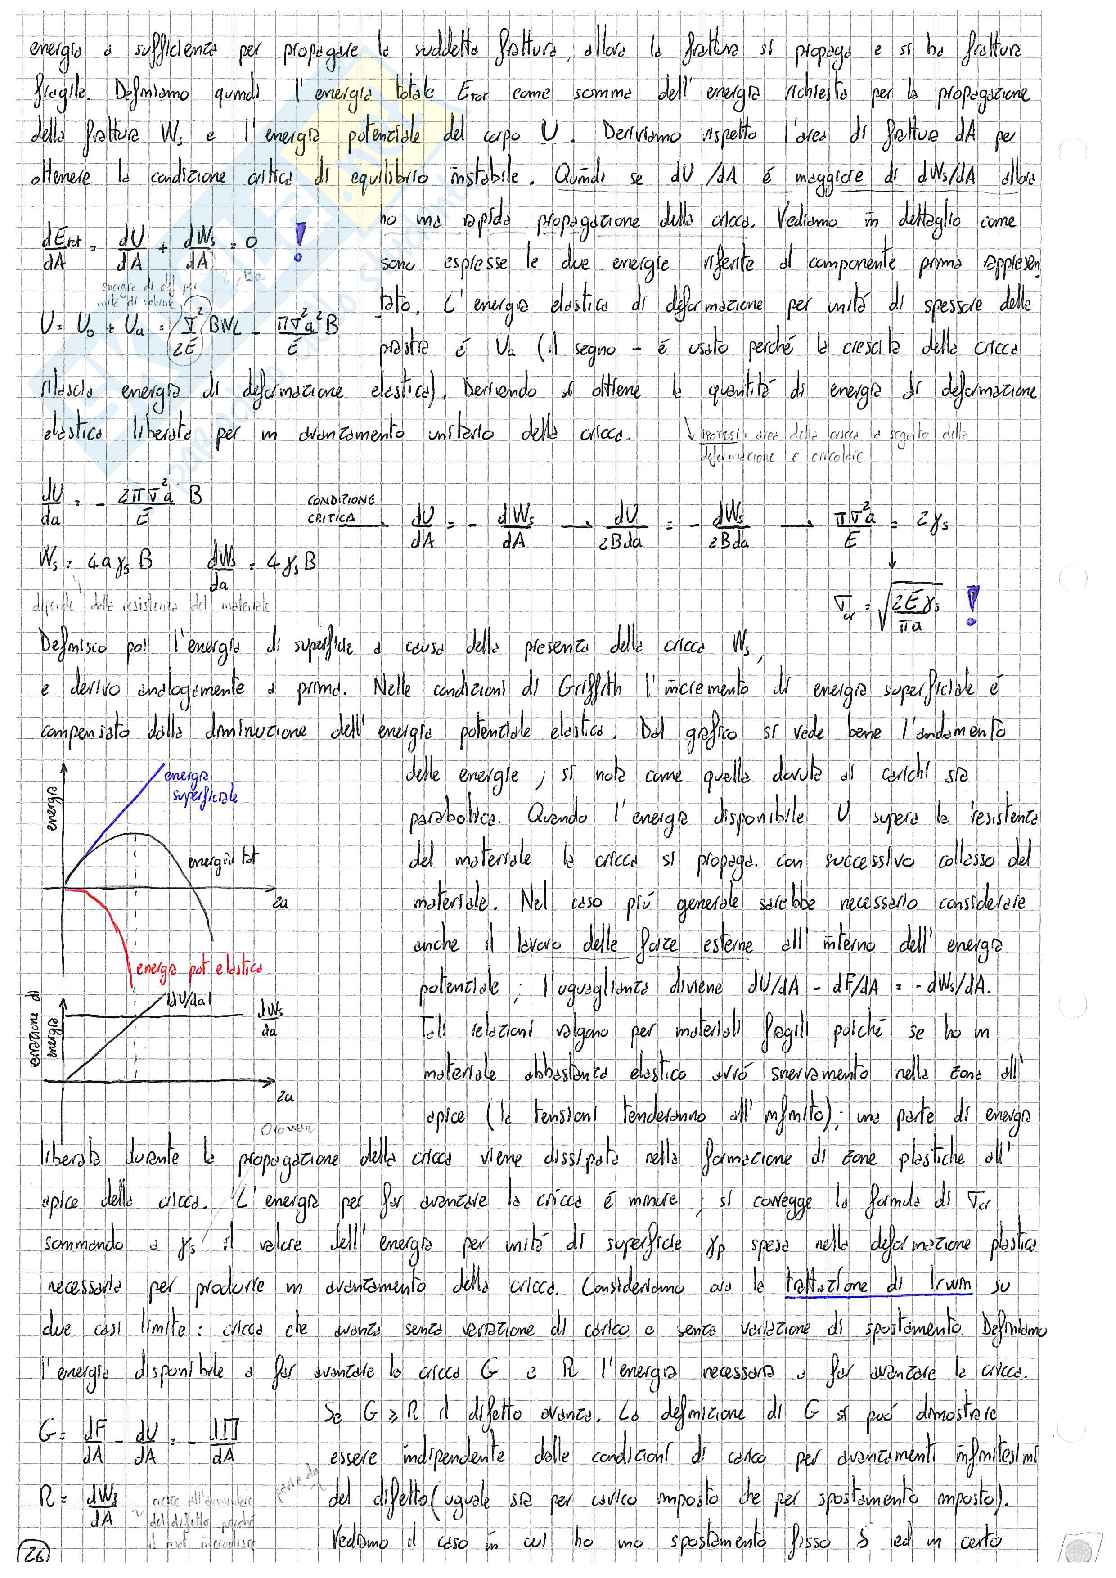 energia a sufficienza per propagare la suddetta frattura, allora la frattura si propaga e si ha frattura
fragile. Definiamo quindi l'energia totale Etot come somma dell'energia richiesta per la propagazione
della frattura Ws e l'energia potenziale del corpo U. Deriviamo rispetto l'area di frattura dA per
ottenere la condizione critica di equilibrio instabile. Quindi se dU/dA è maggiore di dWs/dA allora
ho una rapida propagazione della cricca. Vediamo in dettaglio come
dEtot/dA = dU/dA + dWs/dA = 0 !
sono espresse le due energie riferite al componente prima rappresen
energia di def per
unità di volume
tato. L'energia elastica di deformazione per unità di spessore della
U = U0 + Ua = σ²/2E BWL - πσ²a²B/E
piastra è Ua (il segno - è usato perché la crescita della cricca
rilascia energia di deformazione elastica). Derivando si ottiene la quantità di energia di deformazione
elastica liberata per un avanzamento unitario della cricca.
area della cricca a seguito della
deformazione è circolare
dU/da = - 2πσ²a/E B
CONDIZIONE CRITICA → dU/dA = - dWs/dA → dU/2Bda = - dWs/2Bda → πσ²a/E = 2γs
Ws = 4aγsB dWs/da = 4γsB
dipende dalla resistenza del materiale
σcr = √(2Eγs/πa) !
Definisco poi l'energia di superficie a causa della presenza della cricca Ws,
e derivo analogamente a prima. Nelle condizioni di Griffith l'incremento di energia superficiale è
compensato dalla diminuzione dell'energia potenziale elastica. Dal grafico si vede bene l'andamento
delle energie, si nota come quella dovuta ai carichi sia
parabolica. Quando l'energia disponibile U supera la resistenza
del materiale la cricca si propaga con successivo collasso del
materiale. Nel caso più generale sarebbe necessario considerare
anche il lavoro delle forze esterne all'interno dell'energia
potenziale; l'uguaglianza diviene dU/dA - dF/dA = - dWs/dA.
Tali relazioni valgono per materiali fragili poiché se ho un
materiale abbastanza elastico avrò snervamento nella zona all'
apice (le tensioni tenderanno all'infinito); una parte di energia
energia
energia superficiale
energia tot
2a
energia pot elastica
variazione di energia
|dU/da|
dWs/da
2a
liberata durante la propagazione della cricca viene dissipata nella formazione di zone plastiche all'
apice della cricca. L'energia per far avanzare la cricca è minore; si corregge la formula di σcr
sommando a γs il valore dell'energia per unità di superficie γp spesa nella deformazione plastica
necessaria per produrre un avanzamento della cricca. Consideriamo ora la trattazione di Irwin su
due casi limite: cricca che avanza senza variazione di carico e senza variazione di spostamento. Definiamo
l'energia disponibile a far avanzare la cricca G e R l'energia necessaria a far avanzare la cricca.
Se G ≥ R il difetto avanza. La definizione di G si può dimostrare
G = dF/dA - dU/dA = - dΠ/dA
essere indipendente dalle condizioni di carico per avanzamenti infinitesimi
R = dWs/dA
cresce all'avanzare
del difetto
del difetto (uguale sia per carico imposto che per spostamento imposto).
Vediamo il caso in cui ho uno spostamento fisso δ ed un certo
26